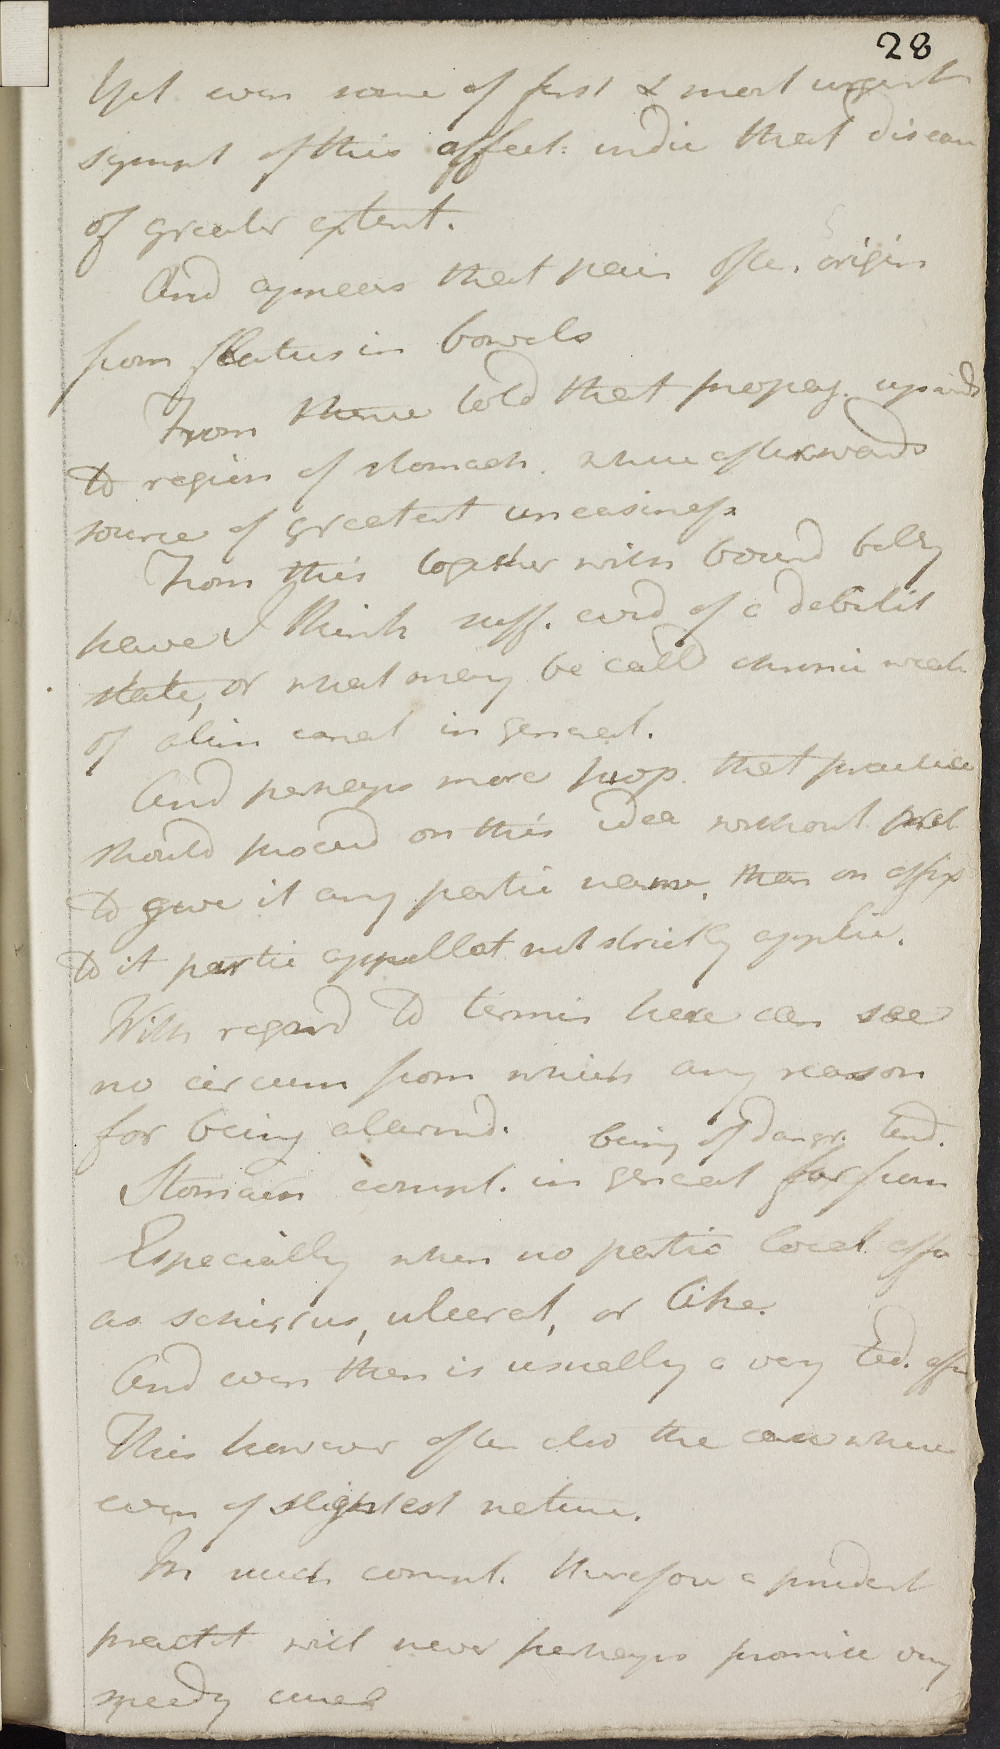 28
Yet even some of first & most urgent
sympt of this affect: indic that disease
of greater extent.
And appears that pain often origin
from flatus in bowels
From thence told that propag. upwards
to region of stomach. where afterwards
source of greatest uneasiness
From this together with bound belly
have I think suff. evid of a debilit
state, or what may be calld chronic weak
of alim canal in general.
And perhaps more prop. that practice
should proceed on this idea without pret
to give it any partic name, than on affix
to it partic appellat not strictly applic.
With regard to termin here can see
no circum from which any reason
for being alarmd.
being of danger. Tend.
Stomach compl. in general far from
Especially when no partic local affe
as schirrus, ulcerat, or like.
And even then is usually a very Ted. affe
This however often also the case where
even of slightest nature.
In such compl. therefore a prudent
practit will never perhaps promise very
speedy cures